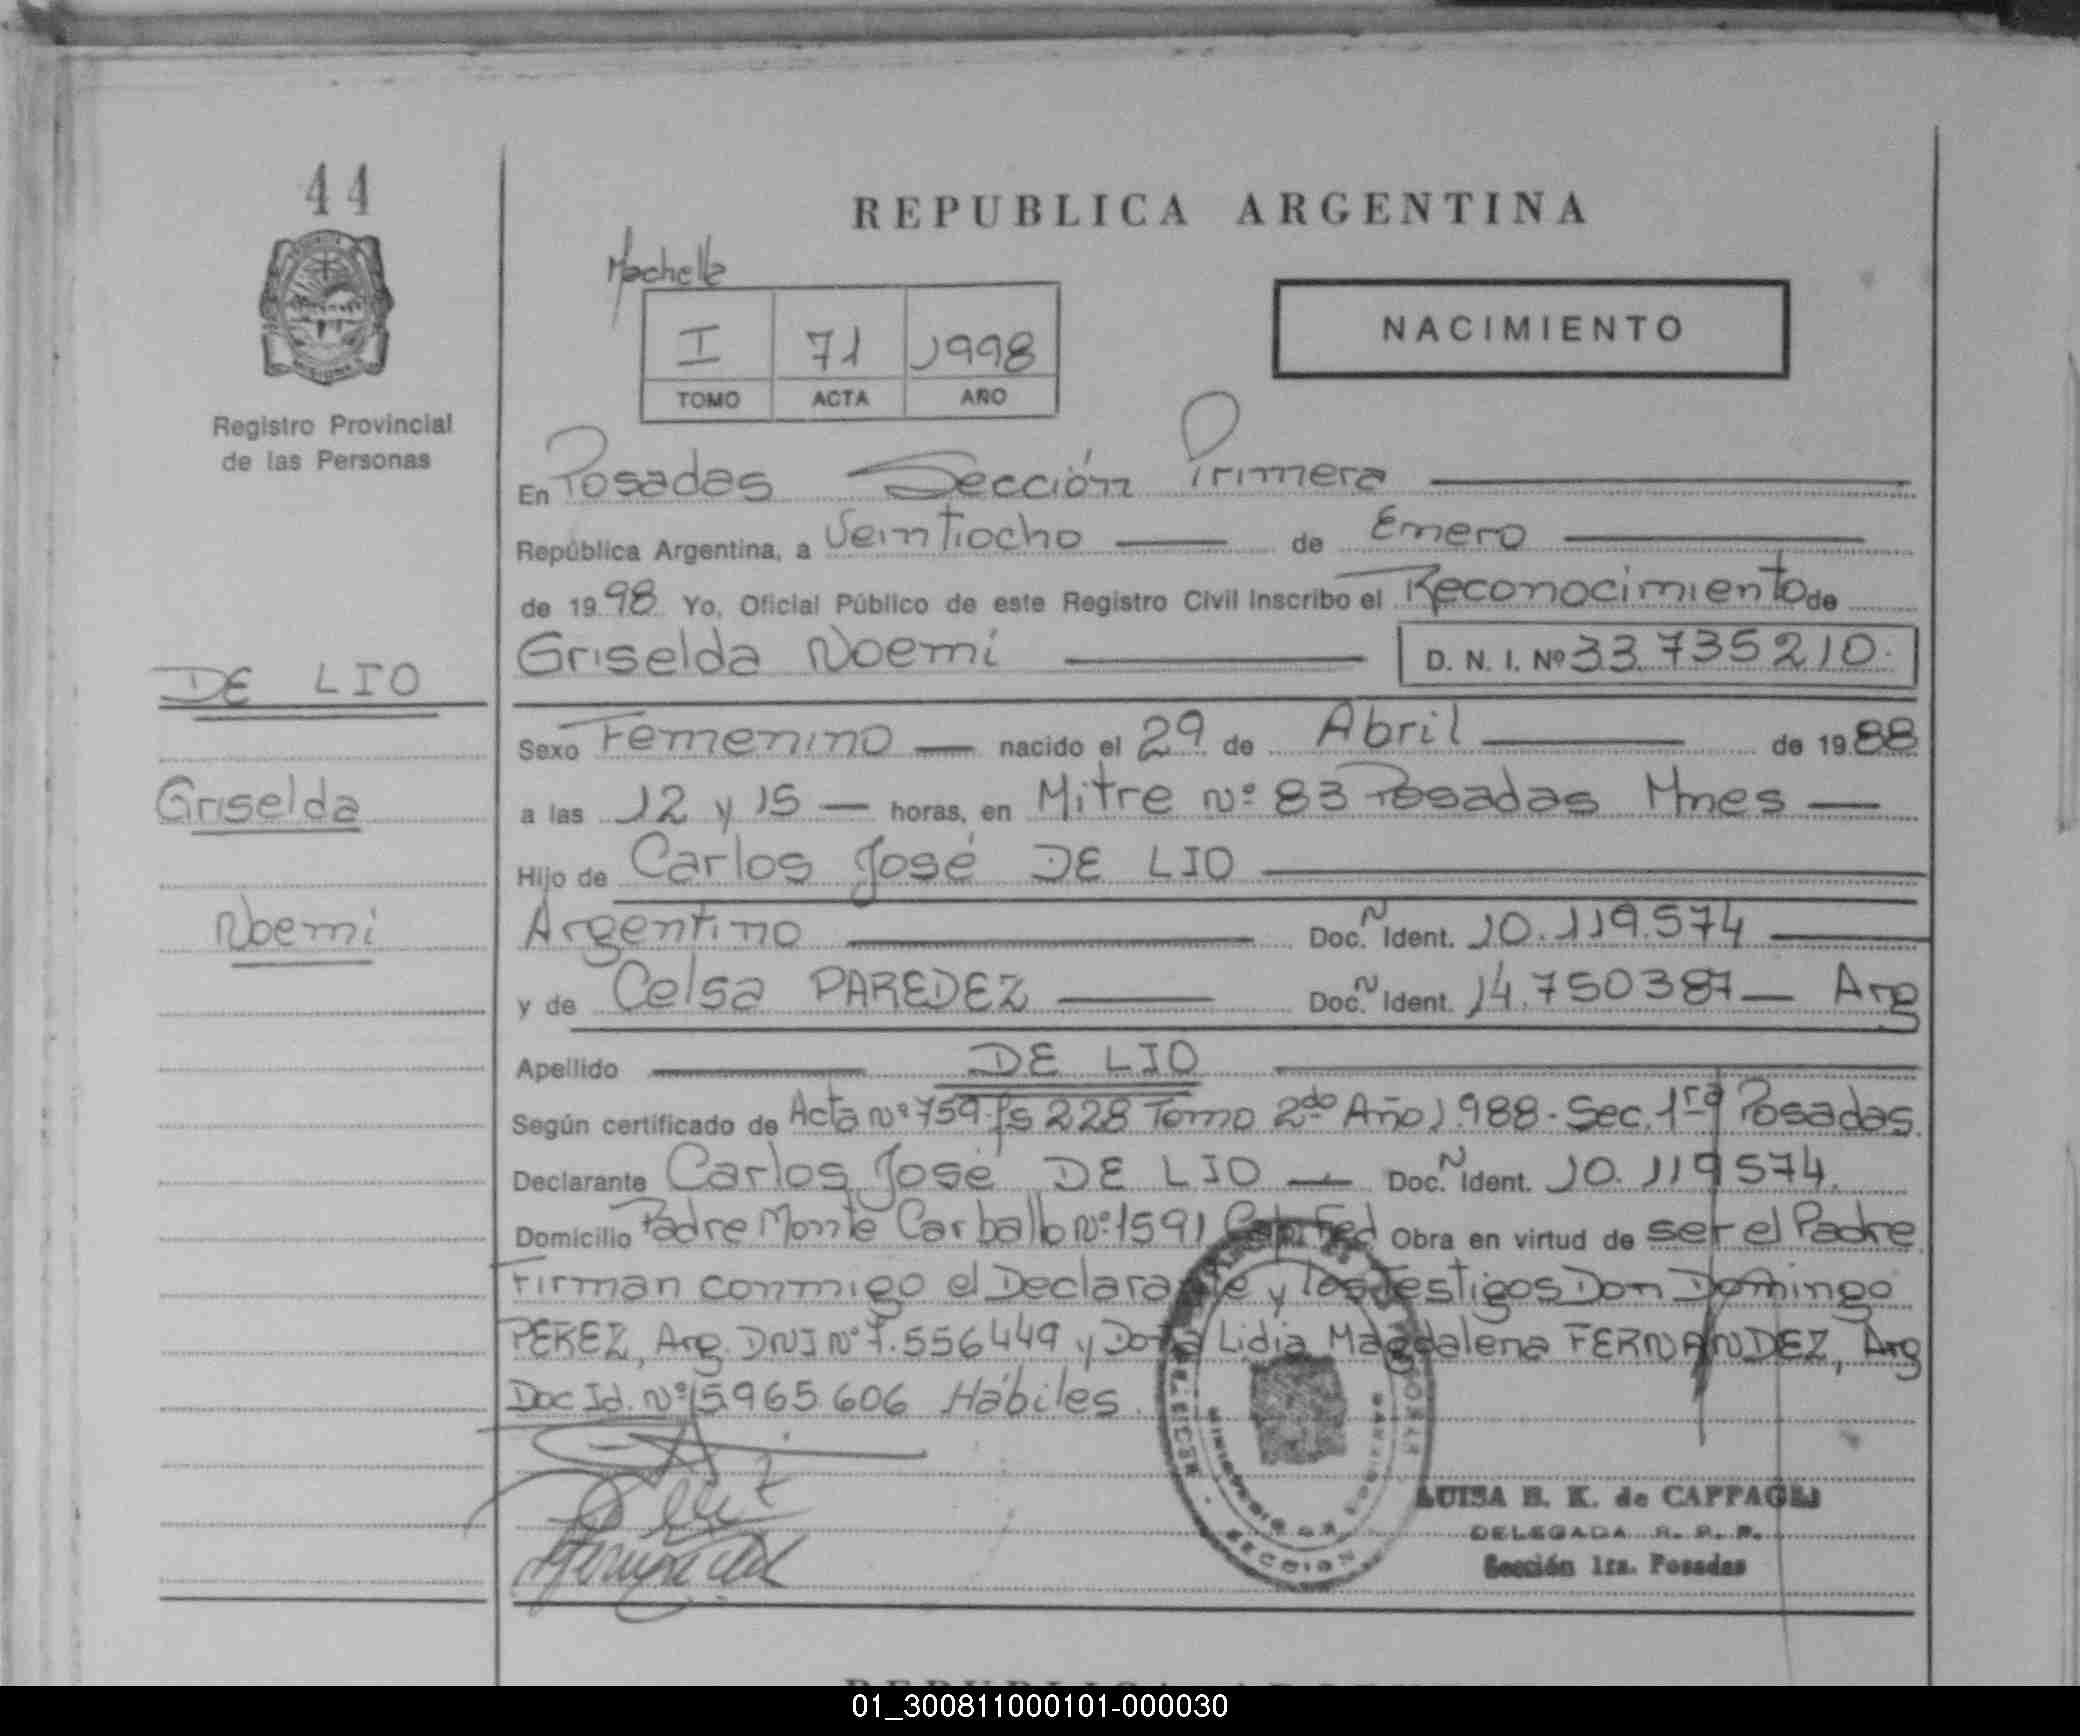 44
REPUBLICA ARGENTINA
I 71 1998
TOMO ACTA AÑO
NACIMIENTO
Registro Provincial
de las Personas
En Posadas Sección Primera
República Argentina, a Veintiocho de Enero
de 1998 Yo, Oficial Público de este Registro Civil Inscribo el Reconocimiento de
Griselda Noemi D. N. I. Nº 33.735210.
DE LIO
Sexo Femenino nacido el 29 de Abril de 1988
Griselda
a las 12 y 15 horas, en Mitre Nº 83 Posadas Mnes
Hijo de Carlos José DE LIO
Noemi
Argentino Doc. N Ident. 10.119.574
y de Celsa PAREDEZ Doc. N Ident. 14.750387 Arg
Apellido DE LIO
Según certificado de Acta Nº 759 fs 228 Tomo 2do Año 1.988. Sec. 1ra Posadas.
Declarante Carlos José DE LIO Doc. N Ident. 10.119574.
Domicilio Padre Monte Carballo Nº 1591 Cap. Fed Obra en virtud de ser el Padre
Firman conmigo el Declarante y los Testigos Don Domingo
PEREZ, Arg. DNI Nº 7.556449 y Doña Lidia Magdalena FERNANDEZ, Arg
Doc Id. Nº 5.965.606 Hábiles.
LUISA B. K. de CAPPAGLI
DELEGADA R. P. P.
Sección 1ra. Posadas
SECCION
01_300811000101-000030